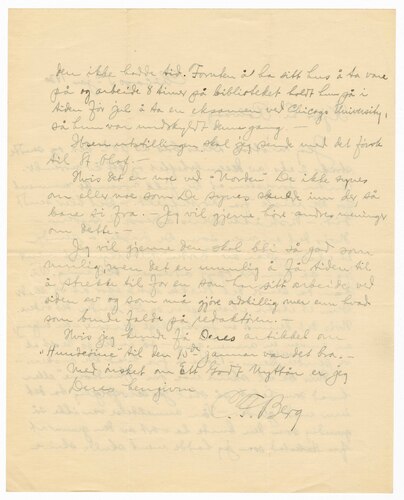 den ikke hadde tid. Foruten å ha sitt hus å ta vare
på og arbeide 8 timer på biblioteket holdt hun på i
tiden før jul å ta en eksamen ved Chicago University,
så hun var undskyldt denne gang —
Ibsen utstillingen skal jeg sende med det første
til St Olaf. —
Hvis det er noe ved "Norden" De ikke synes
om eller noe som De synes skulde inn der, så
bare si fra. — Jeg vil gjerne høre andres meninger
om dette. —
Jeg vil gjerne den skal bli så god som
mulig, men det er umulig å få tiden til
å strekke til for en som har sitt arbeide ved
siden av og som må gjøre adskillig mer enn hvad
som burde falde på redaktøren. —
Hvis jeg kunde få Deres artikkel om
"Hundeårene" til den 10de januar var det bra. —
Med ønsket om Ett Godt Nyttår er jeg
Deres hengivne
T. Berg